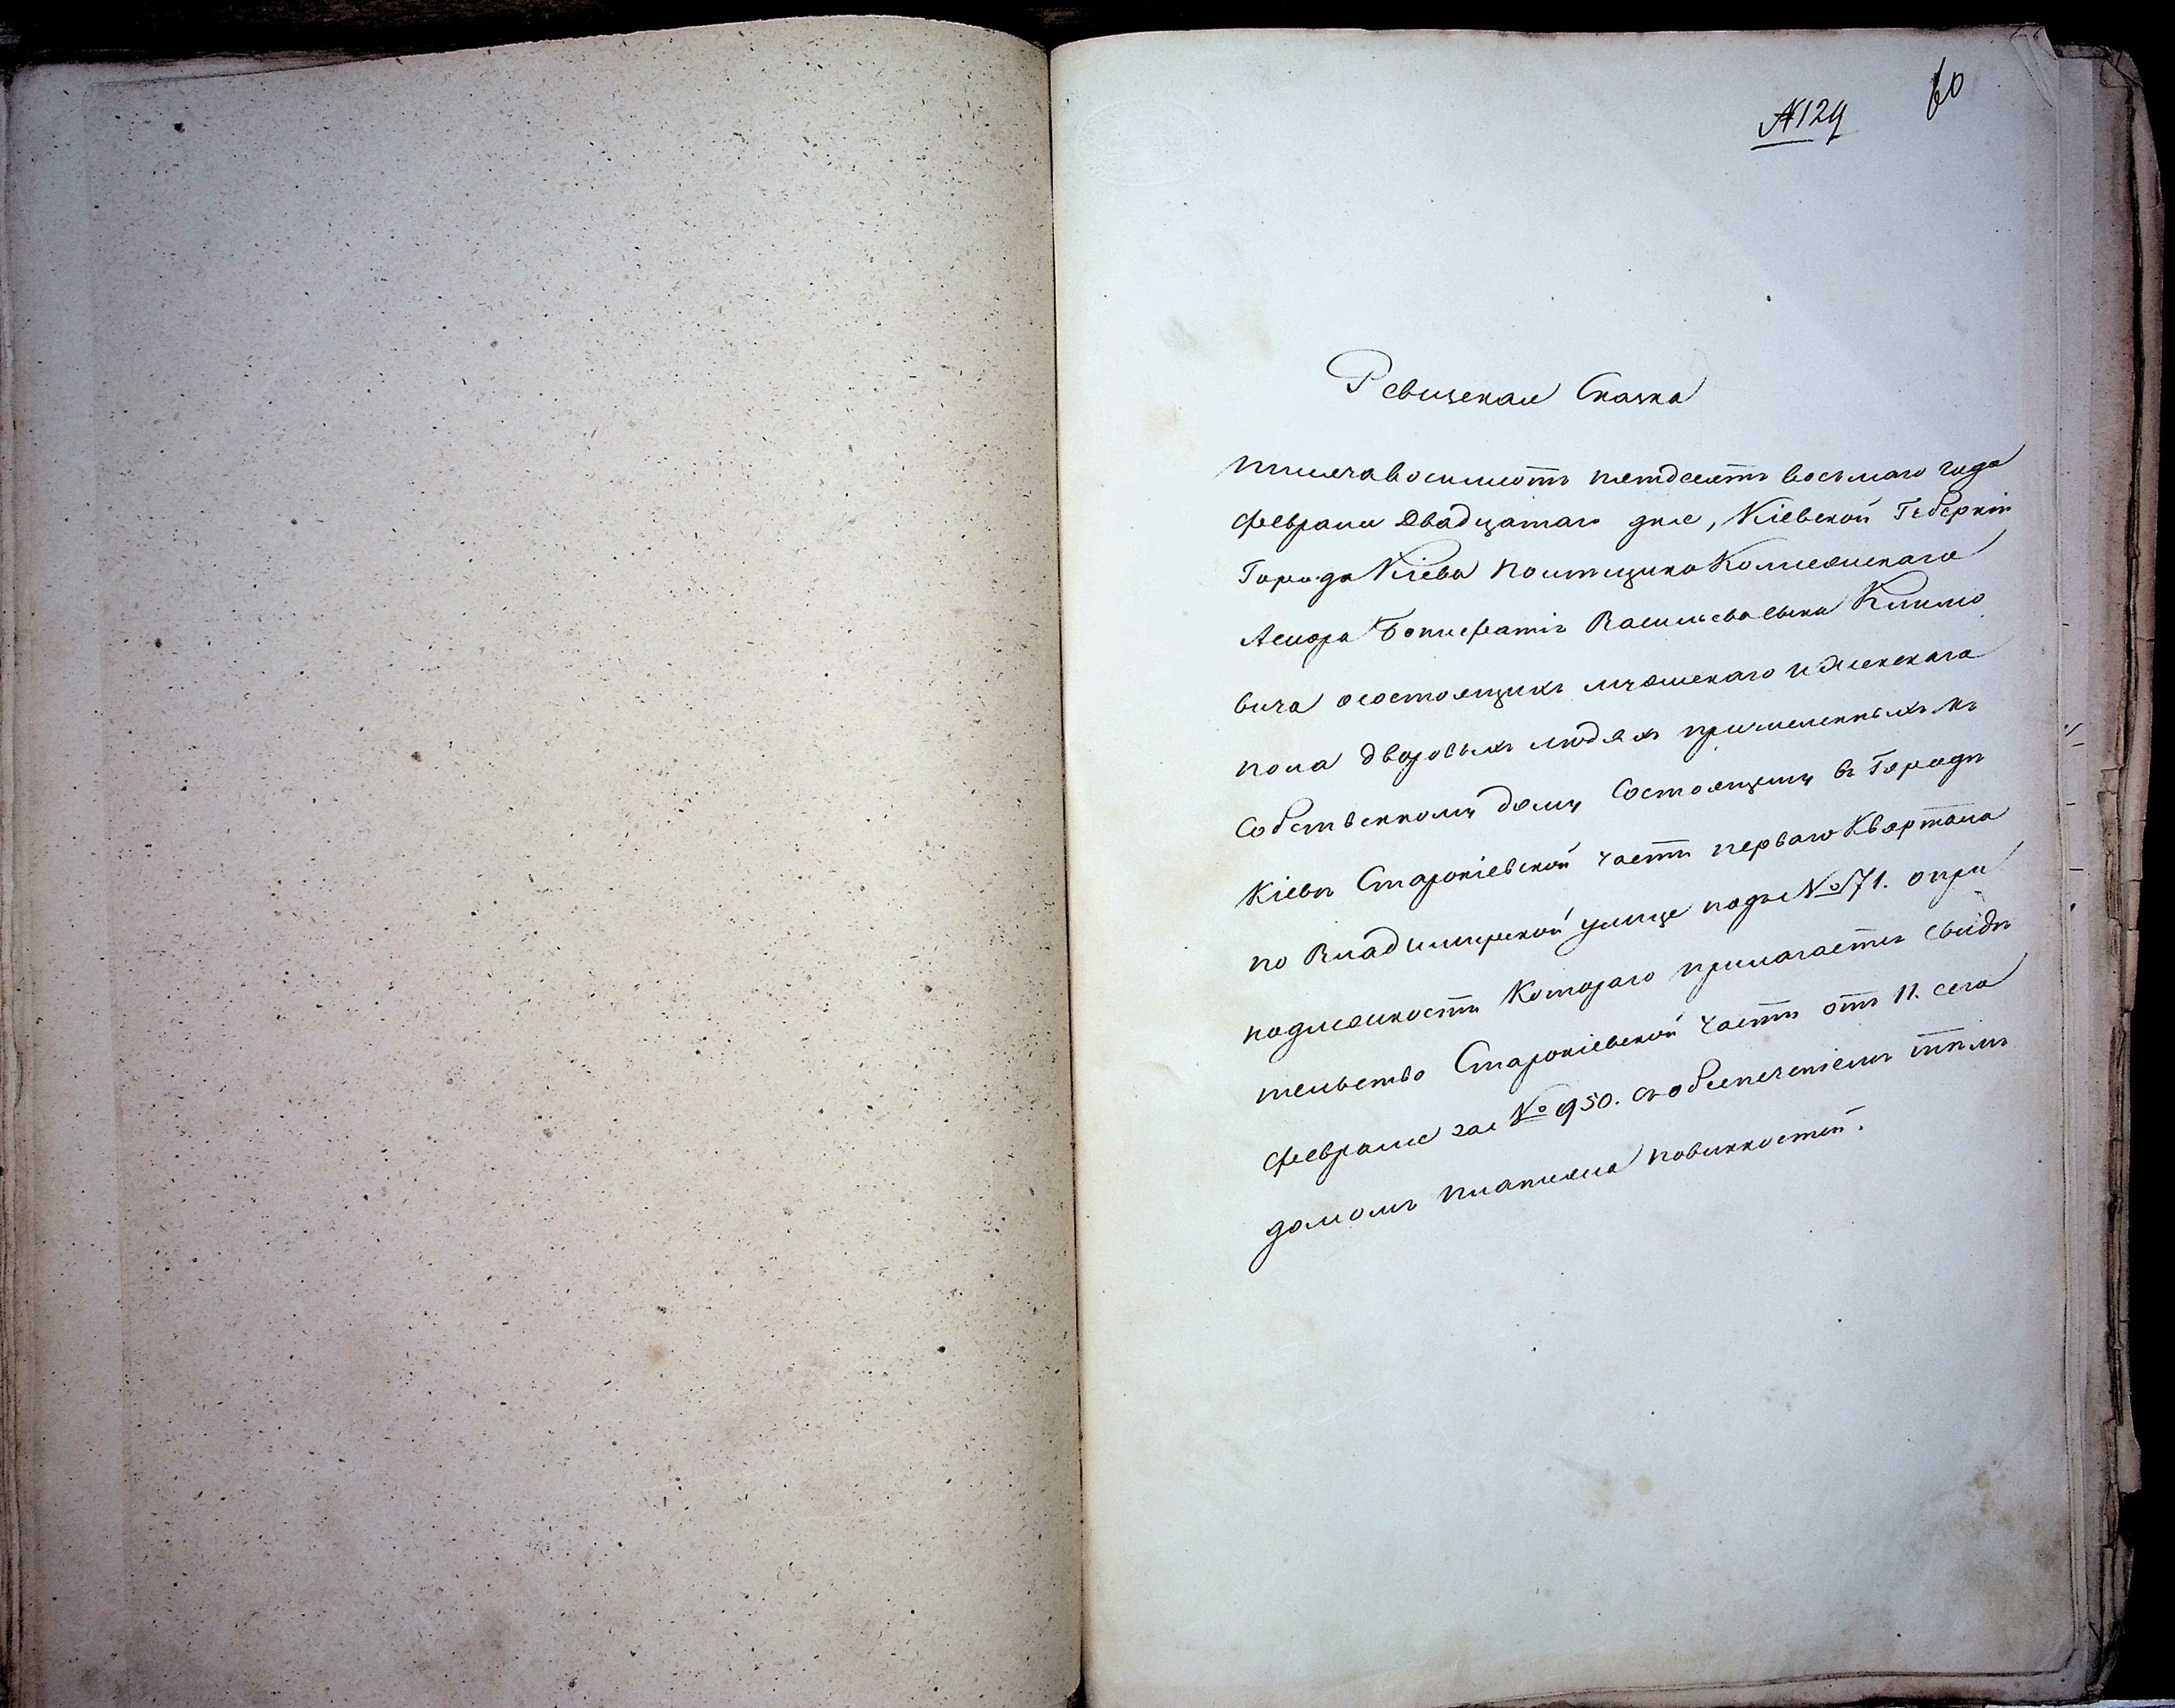 № 124 60
Ревизская Сказка
тысяча восимьсотъ пятдесятъ восьмаго года
февраля Двадцатаго дня, Кіевской Губерніи
Города Кіева Помещика Колежскаго
Асесора Бонифатія Васильева сына Климо
вича осостоящихъ мужескаго и женскаго
пола дворовыхъ людяхъ причисленныхъ къ
собственному дому Состоящему въ Городѣ
Кіевѣ Старокіевской части перваго Квартала
по Владимирской улице подъ № 71. о при
надлежности Котораго прилагается свидѣ
тельство Старокіевской Части отъ 11. сего
февраля за № 950. съ обеспеченіемъ тѣмъ
домомъ платежа повинностей.